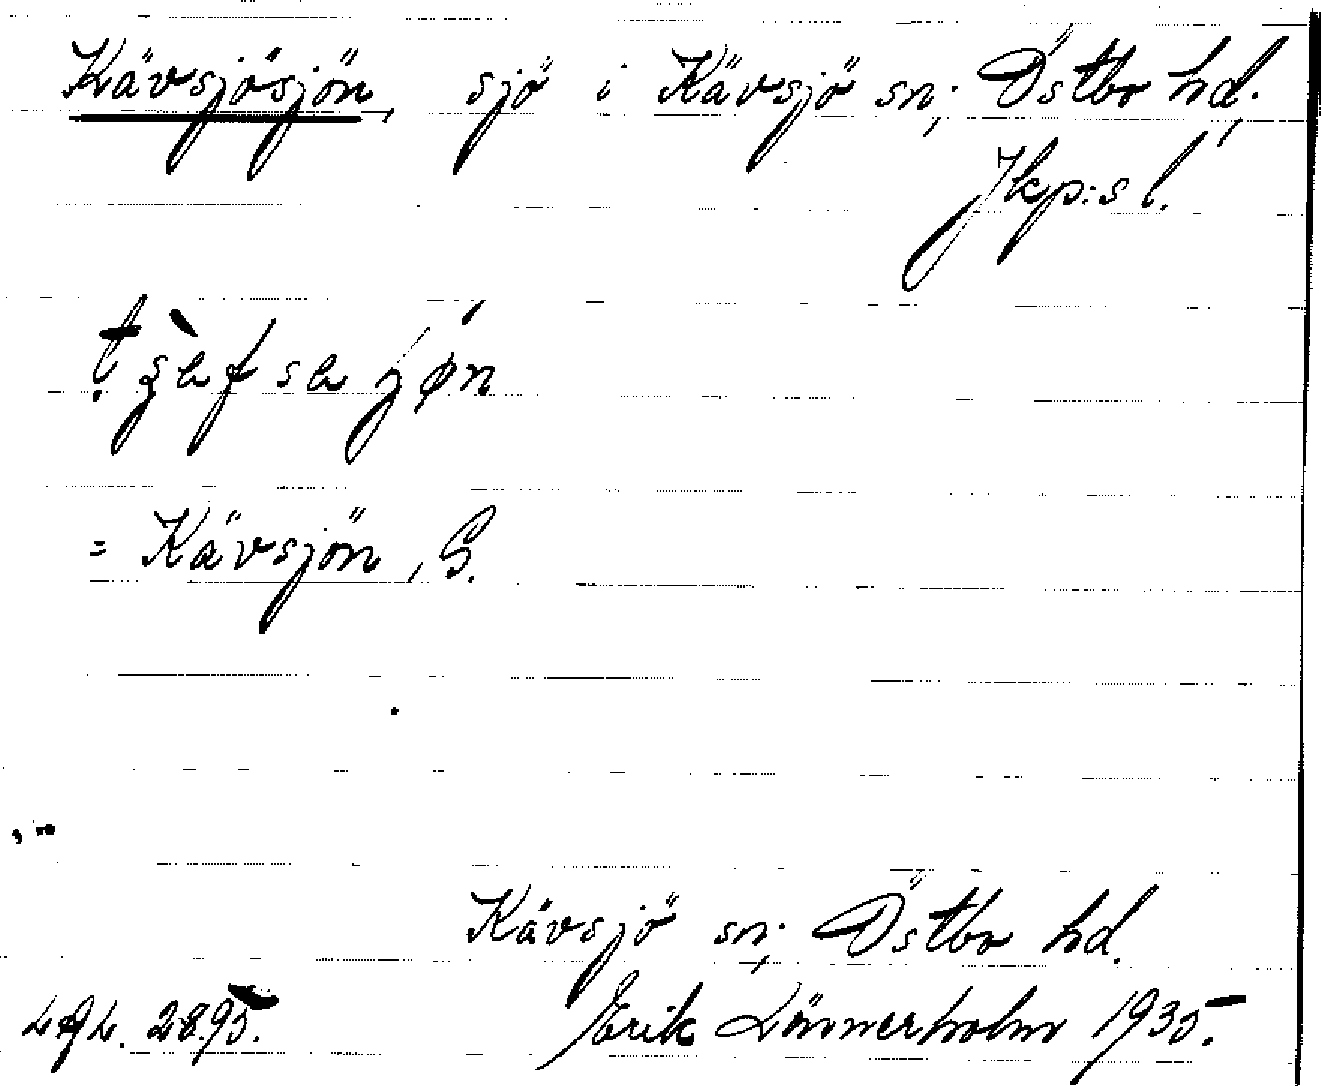 Kävsjösjön, sjö i Kävsjö sn, Östbo hd,
Jkp:s l.
= Kävsjön, G.
Kävsjö sn, Östbo hd.
Erik Lönnerholm 1935.